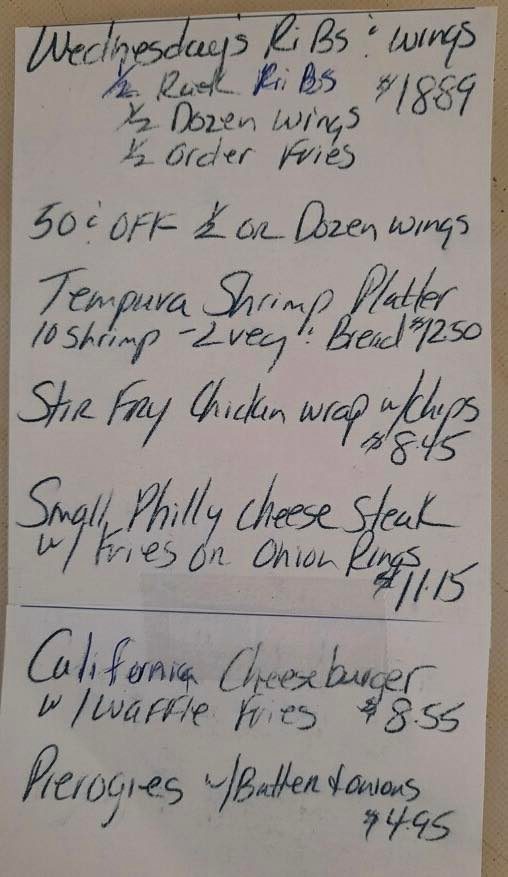 Wednesday's RiBs & wings
1/2 Rack RiBs $18.89
1/2 Dozen wings
1/2 order Fries
50¢ OFF 1/2 or Dozen wings
Tempura Shrimp Platter
10 shrimp - 2 veg & Bread $12.50
Stir Fry Chicken wrap w/chips
$8.45
Small Philly cheese Steak
w/ Fries or Onion Rings
$11.15
California Cheeseburger
w/ waffle Fries $8.55
Pierogies w/Butter & onions
$4.95